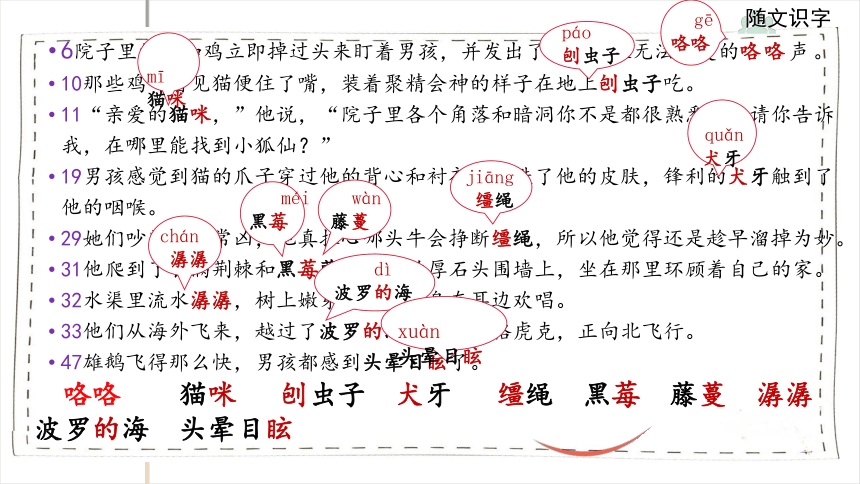 随文识字
páo
刨虫子
gē
咯咯
mī
猫咪
quǎn
犬牙
jiāng
缰绳
méi
黑莓
wàn
藤蔓
chán
潺潺
dì
波罗的海
xuàn
头晕目眩
•6院子里 鸡立即掉过头来盯着男孩，并发出了 无法 的咯咯声。
•10那些鸡 见猫便住了嘴，装着聚精会神的样子在地上刨虫子吃。
•11“亲爱的猫咪，”他说，“院子里各个角落和暗洞你不是都很熟悉 请你告诉
我，在哪里能找到小狐仙？”
•19男孩感觉到猫的爪子穿过他的背心和衬 了他的皮肤，锋利的犬牙触到了
他的咽喉。
•29她们吵 常凶， 真 那头牛会挣断缰绳，所以他觉得还是趁早溜掉为妙。
•31他爬到了 荆棘和黑莓 厚石头围墙上，坐在那里环顾着自己的家。
•32水渠里流水潺潺，树上嫩 在耳边欢唱。
•33他们从海外飞来，越过了波罗的 虎克，正向北飞行。
•47雄鹅飞得那么快，男孩都感到头晕目眩了。
咯咯 猫咪 刨虫子 犬牙 缰绳 黑莓 藤蔓 潺潺
波罗的海 头晕目眩